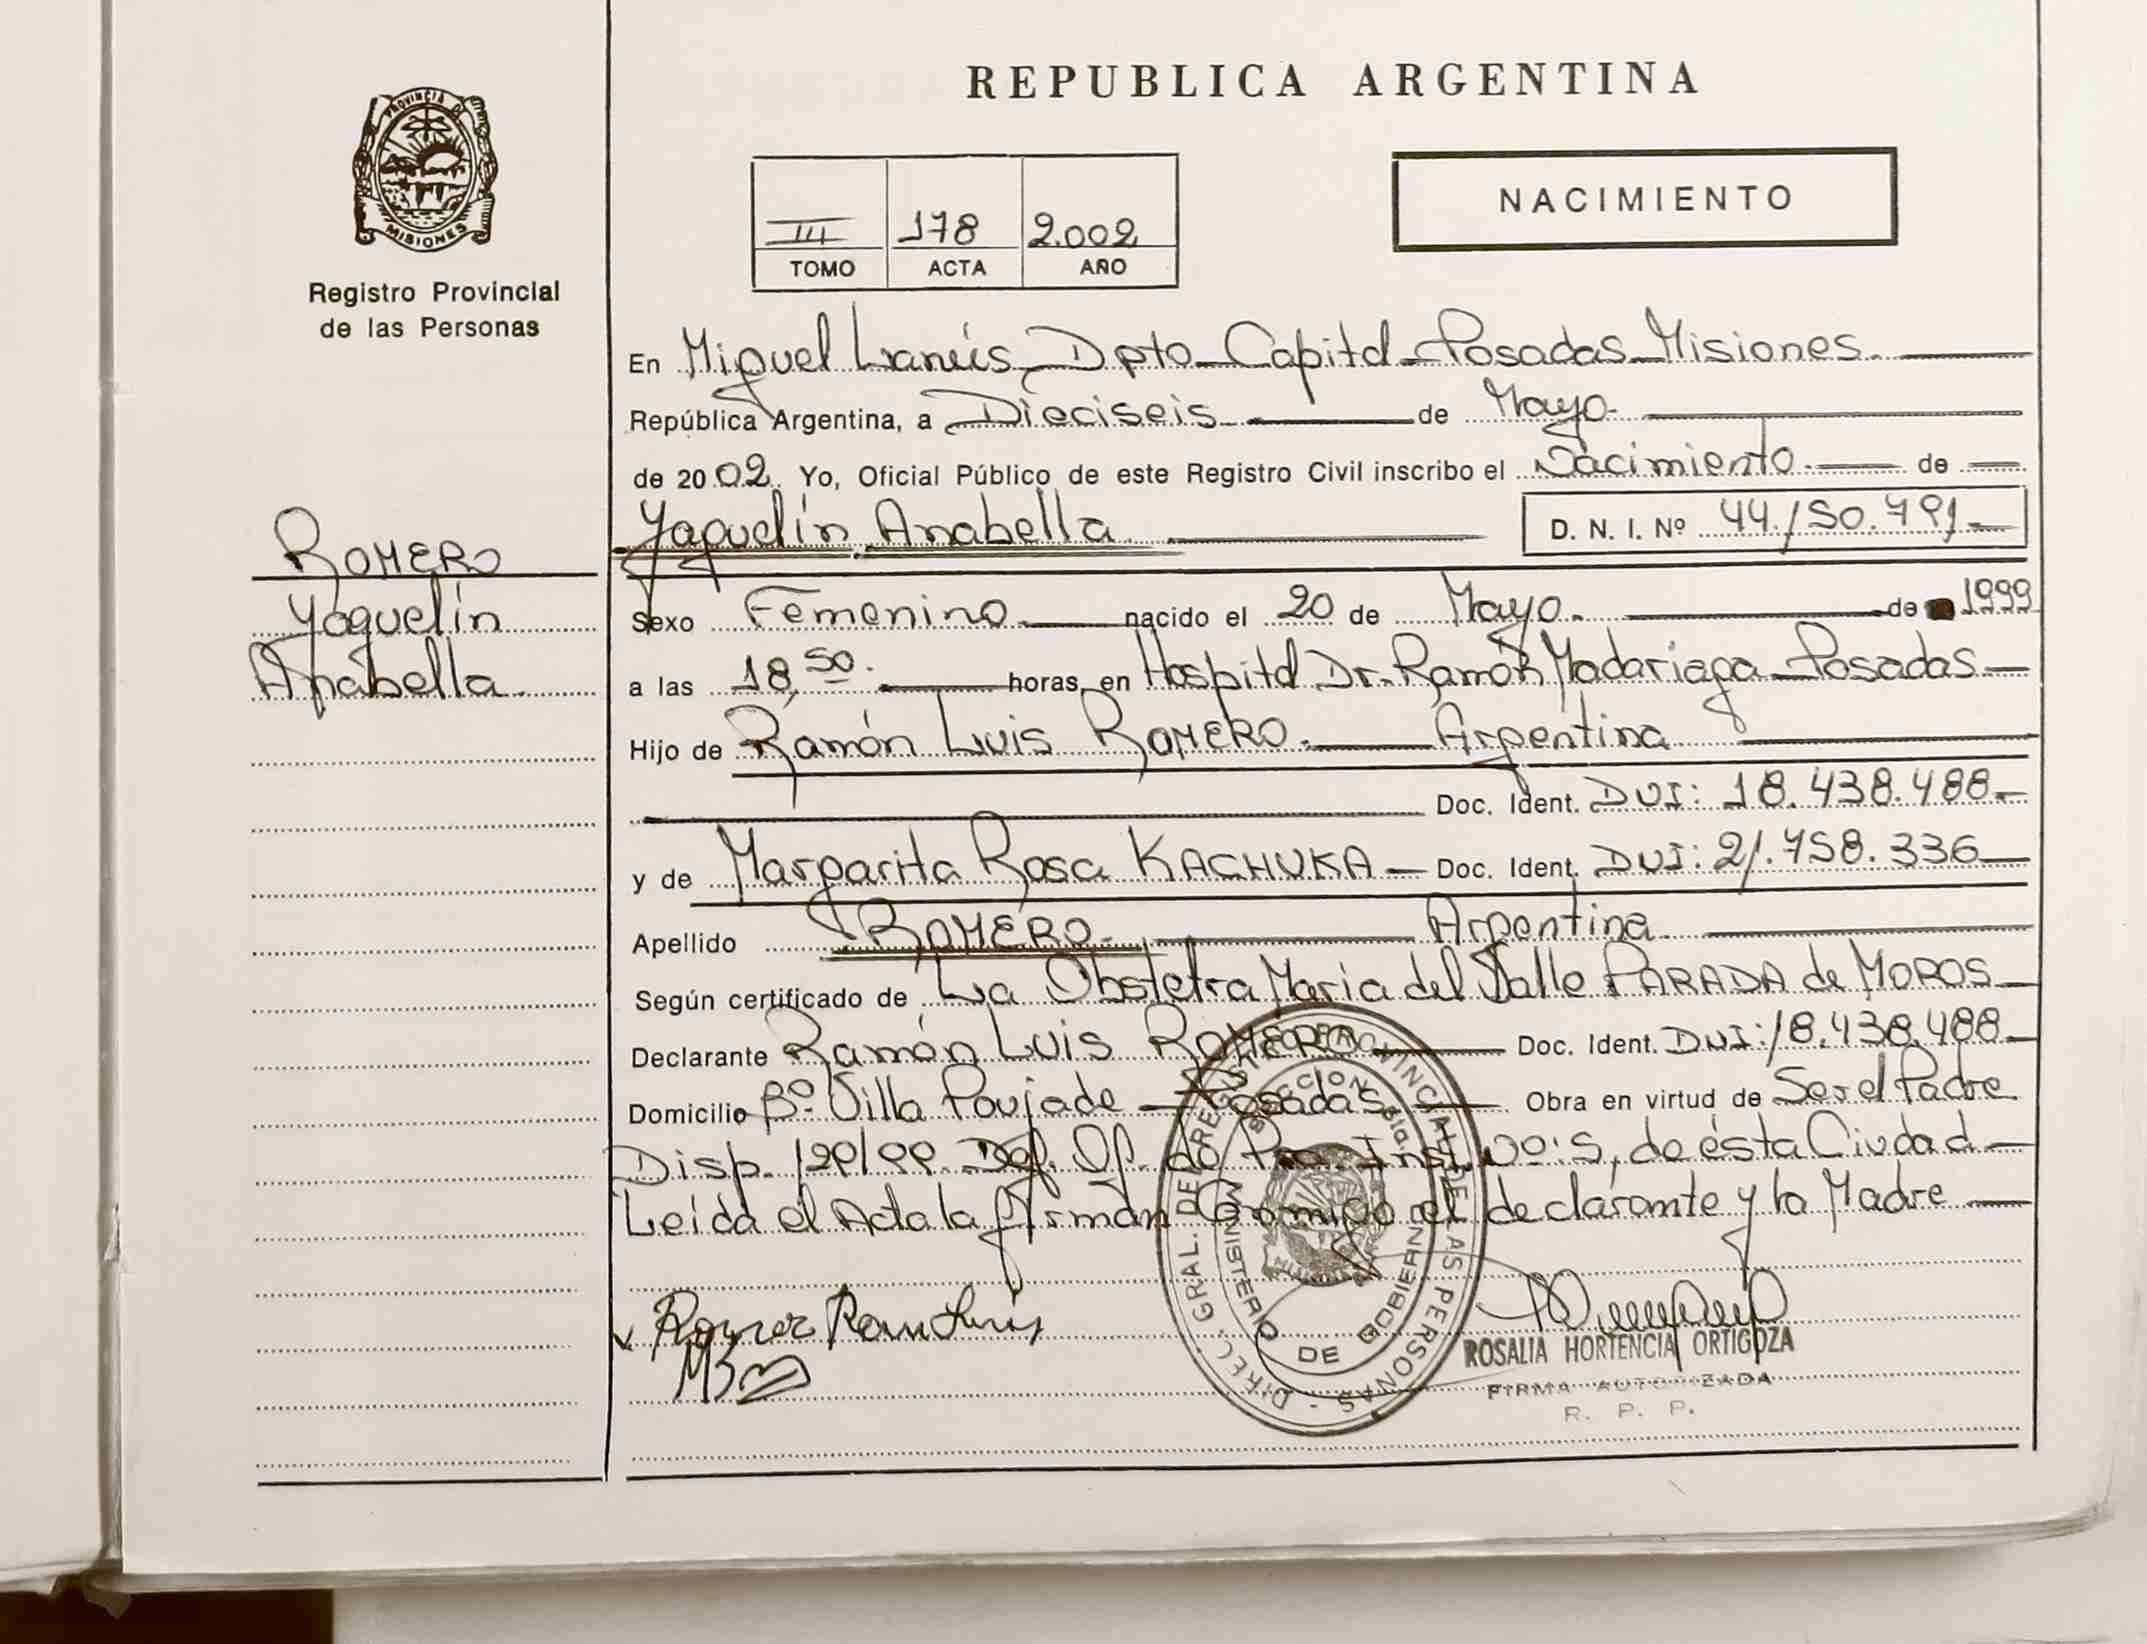 REPUBLICA ARGENTINA
PROVINCIA DE
MISIONES
Registro Provincial
de las Personas
III 178 2.002
TOMO ACTA AÑO
NACIMIENTO
En Miguel Lanús Dpto Capital Posadas Misiones
República Argentina, a Dieciseis de Mayo
de 2002. Yo, Oficial Público de este Registro Civil inscribo el Nacimiento de
Yaquelín Anabella D. N. I. Nº 44.150.791
ROMERO
Yaquelín
Anabella
Sexo Femenino nacido el 20 de Mayo de 1999
a las 18,50. horas, en Hospital Dr. Ramón Madariaga Posadas
Hijo de Ramón Luis ROMERO. Argentina
Doc. Ident. DNI: 18.438.488
y de Margarita Rosa KACHUKA Doc. Ident. DNI: 21.758.336
Apellido ROMERO. Argentina
Según certificado de La Obstetra María del Valle PARADA de MOROS
Declarante Ramón Luis ROMERO Doc. Ident. DNI: 18.438.488
Domicilio Bº Villa Poujade Posadas Obra en virtud de Ser el Padre
Disp. Def. Of. de Inst. Nº: 5, de ésta Ciudad
Leída el Acta la firman Conmigo el declarante y la Madre
Romero Ramon Luis
DIREC. GRAL. DE REGISTRO PROVINCIAL DE LAS PERSONAS
MINISTERIO DE GOBIERNO
ROSALIA HORTENCIA ORTIGOZA
FIRMA AUTORIZADA
R. P. P.